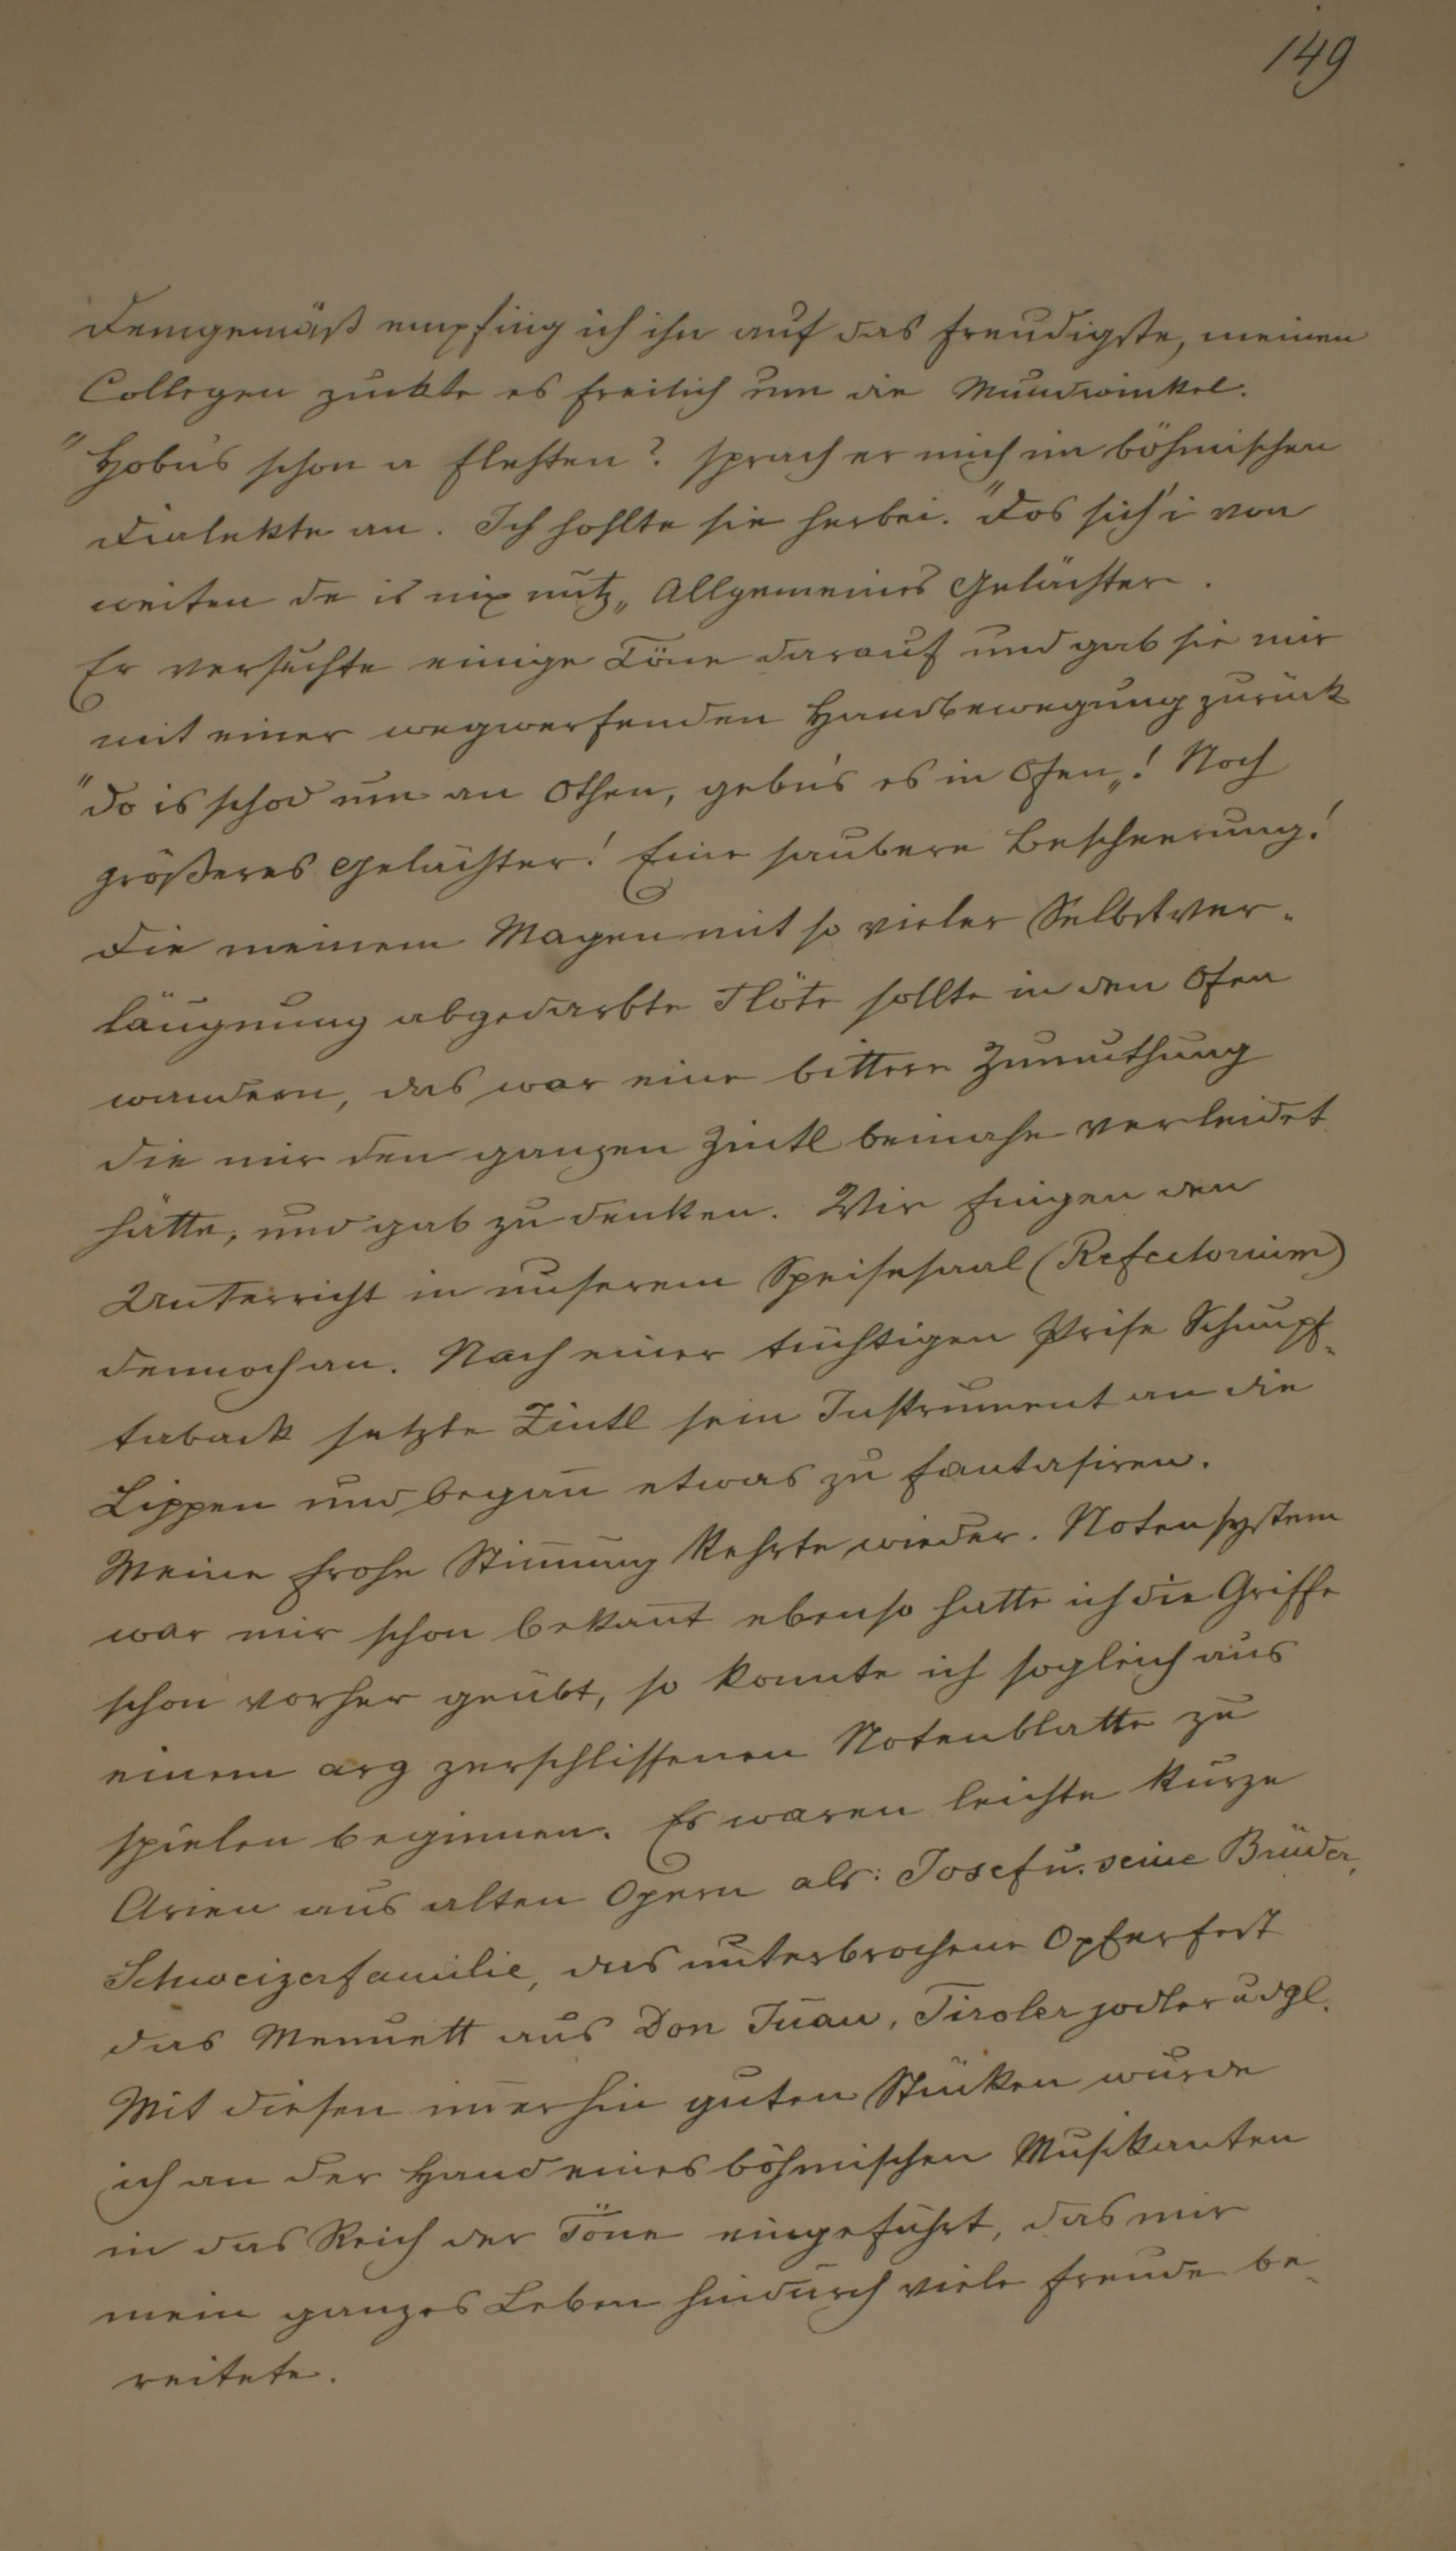 149
Demgemäß empfing ich ihn auf das freudigste, meinen
Collegen zuckte es freilich um die Mundwinkel.
"Hobn's schon a Flehten? sprach er mich im böhmischen
Dialekte an. Ich hohlte sie herbei. "Dos sich' i von
weiten de is nix nutz„ Allgemeines Gelächter.
Er versuchte einige Töne darauf und gab sie mir
mit einer wegwerfenden Handbewegung zurück
"do is schod um an Othen, gebn's es in Ofen„! Noch
größeres Gelächter! Eine saubere Bescheerung!
Die meinem Magen mit so vieler Selbstver-
läugnung abgedarbte Flöte sollte in den Ofen
wandern, das war eine bittere Zumuthung
die mir den ganzen Zintl beinahe verleidet
hätte, und gab zu denken. Wir fingen den
Unterricht in unserem Speisesaal (Refectorium)
dennoch an. Nach einer tüchtigen Prise Schnupf-
taback setzte Zintl sein Instrument an die
Lippen und began̄ etwas zu fantasiren.
Meine frohe Stim̄ung kehrte wieder. Notensystem
war mir schon bekan̄t ebenso hatte ich die Griffe
schon vorher geübt, so konnte ich sogleich aus
einem arg zerschlissenen Notenblatte zu
spielen beginnen. Es waren leichte kurze
Arien aus alten Opern als: Josef u. seine Brüder,
Schweizerfamilie, das unterbrochene Opferfest
das Menuett aus Don Juan, Tiroler jodler udgl.
Mit diesen im̄erhin guten Stücken wurde
ich an der Hand eines böhmischen Musikanten
in das Reich der Töne eingeführt, das mir
mein ganzes Leben hindurch viele Freude be-
reitete.